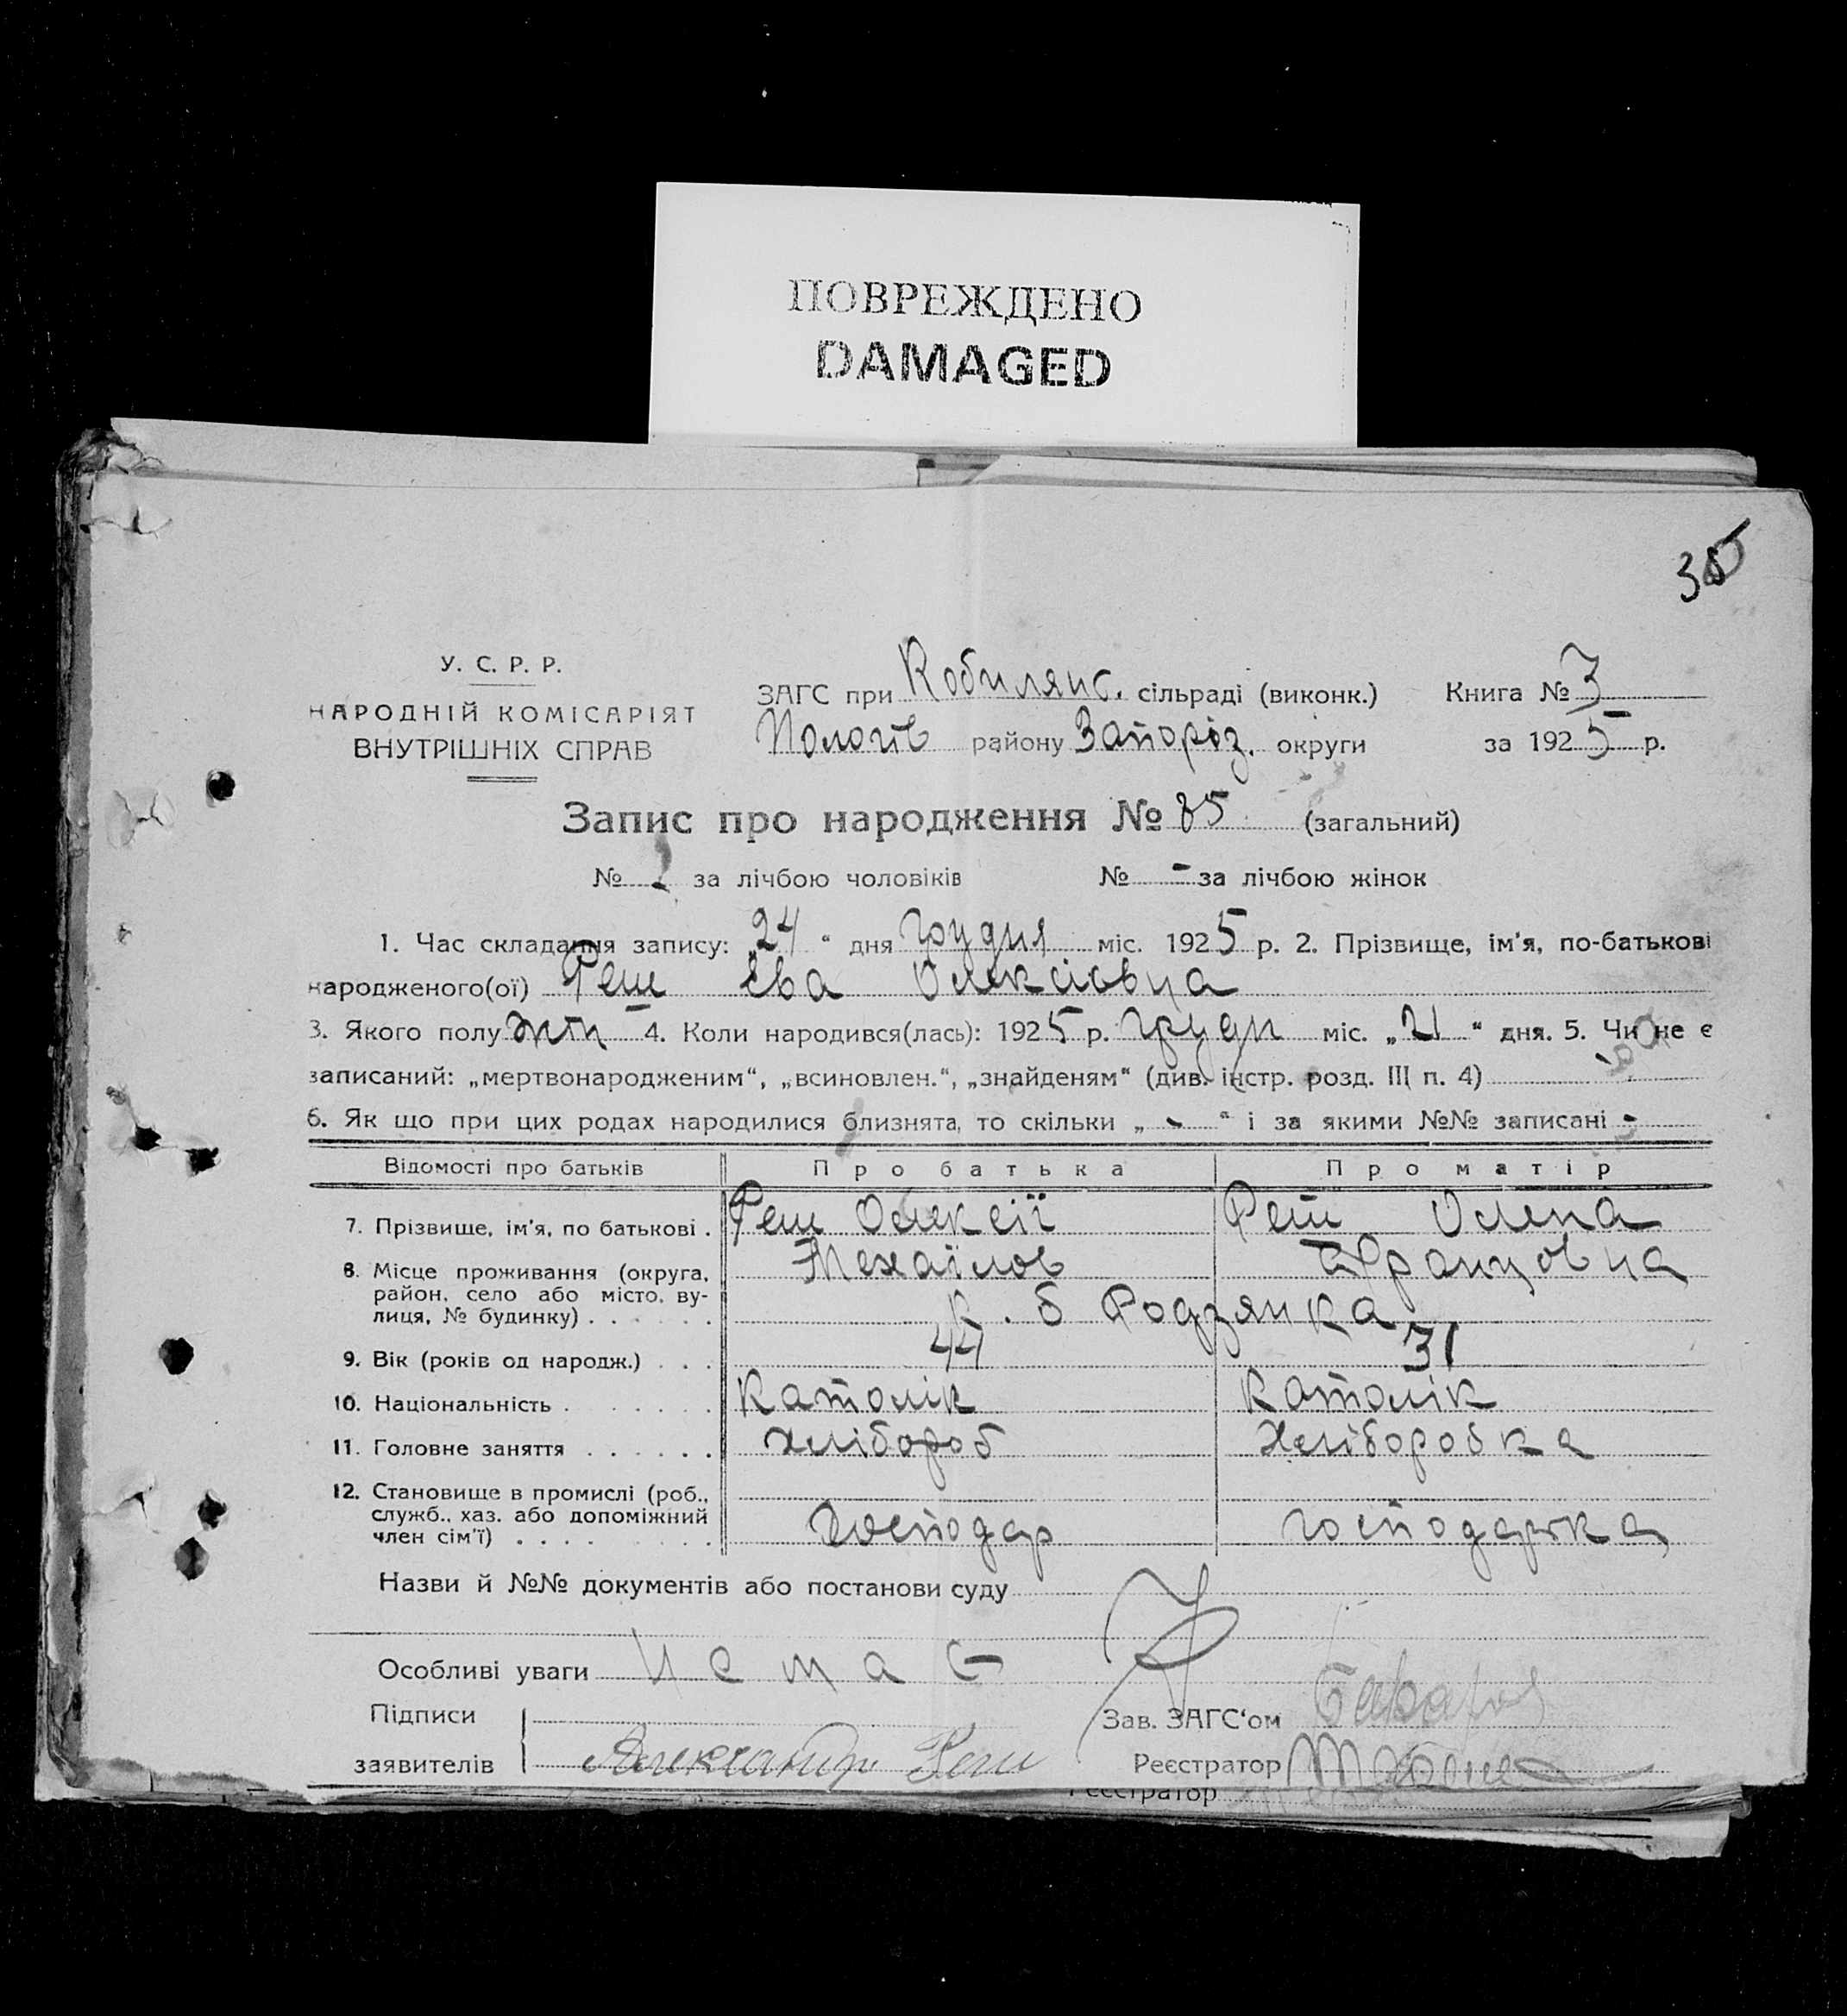 ПОВРЕЖДЕНО
DAMAGED
35
У. С. Р. Р.
НАРОДНІЙ КОМІСАРІЯТ
ВНУТРІШНІХ СПРАВ
ЗАГС при Кобилянс. сільраді (виконк.) Книга № 3
Пологів району Запоріз. округи за 1925 р.
Запис про народження № 85 (загальний)
№ за лічбою чоловіків № - за лічбою жінок
1. Час складання запису: „24“ дня грудня міс. 1925 р. 2. Прізвище, ім'я, по-батькові
народженого(ої) Реш Ева Олексіовна
3. Якого полу жін 4. Коли народився(лась): 1925 р. грудн міс. „21“ дня. 5. Чи не є
записаний: „мертвонародженим“, „всиновлен.“, „знайденям“ (див. інстр. розд. III п. 4)
6. Як що при цих родах народилися близнята, то скільки „ - “ і за якими №№ записані -
Відомості про батьків Про батька Про матір
7. Прізвище, ім'я, по батькові . Реш Олексії Реш Олена
Михаілов Францовна
8. Місце проживання (округа, район, село або місто, вулиця, № будинку) . . . . . . к. б Родзянка
9. Вік (років од народж.) . . . 44 31
10. Національність . . . . . . . Католік Католік
11. Головне заняття . . . . . . хлібороб Хлiборобка
12. Становище в промислі (роб., служб., хаз. або допоміжний член сім'ї) . . . . Господар господарка
Назви й №№ документів або постанови суду
Особливі уваги Немає
Підписи
заявителів Александр Реш
Зав. ЗАГС'ом
Реєстратор
Реєстратор